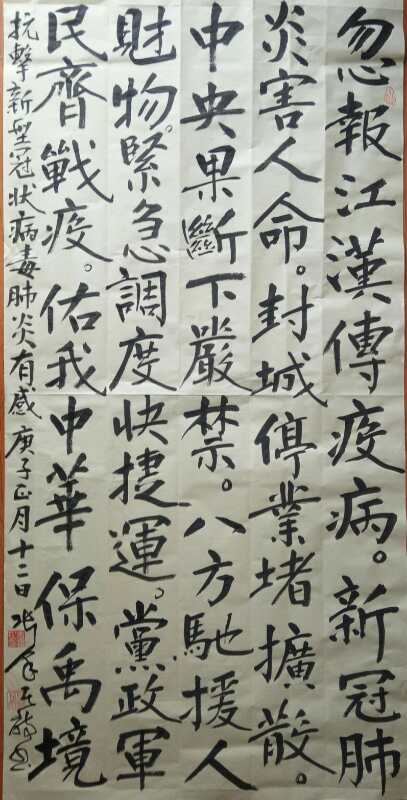 忽報江漢傳疫病。新冠肺
炎害人命。封城停業堵擴散。
中央果斷下嚴禁。八方馳援人
財物。緊急調度快捷運。黨政軍
民齊戰疫。佑我中華保禹境
抗擊新型冠状病毒肺炎有感 庚子正月十二日